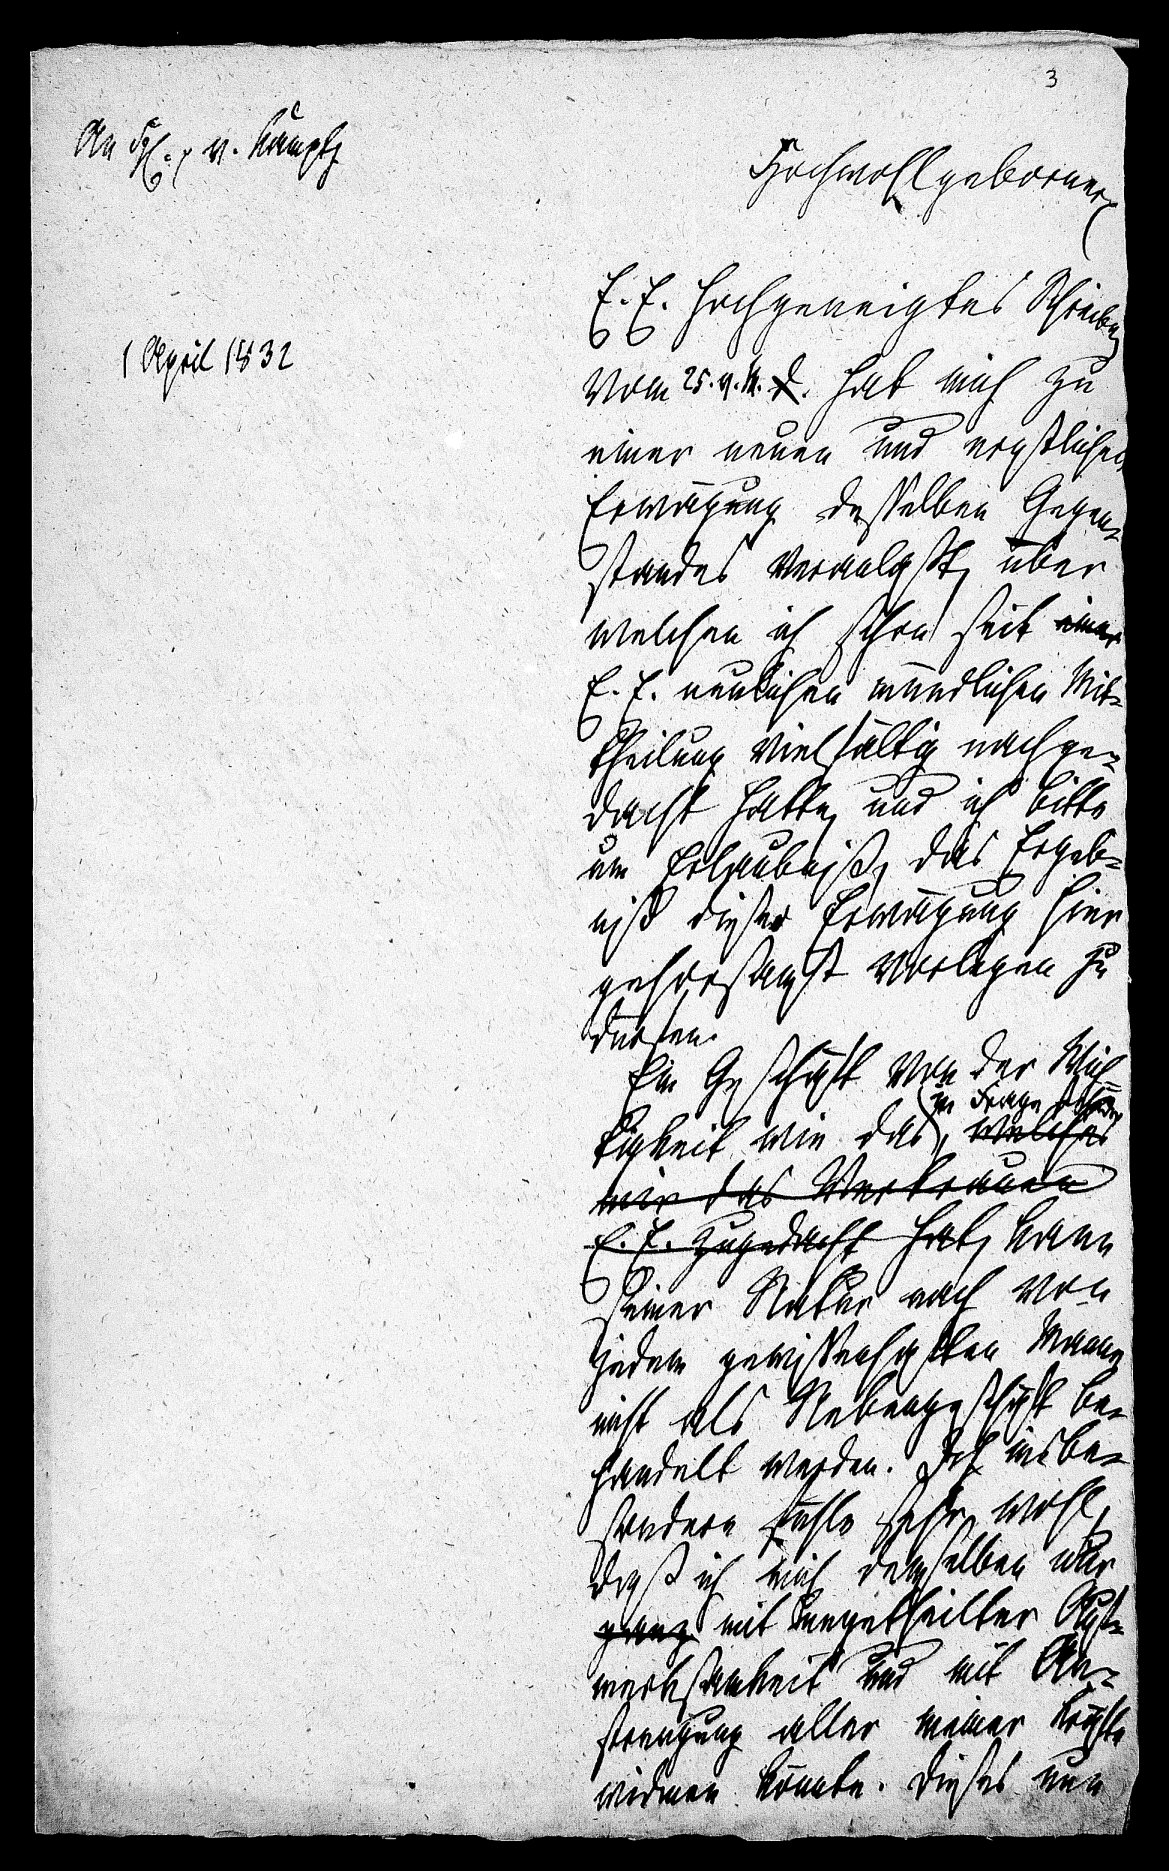 3
An v. Kamptz
Hochwohlgeborner
1 April 1832
E. E. hochgeneigtes Schreiben
vom 25. v. M. hat mich zu
einer neuen und ernstlichen
Erwägung desselben Gegen-
standes veranlaßt, über
welchen ich schon seit einer
E. E. neulichen mündlichen Mit-
theilung vielfältig nachge-
dacht hatte, und ich bitte
um Erlaubniß, das Ergeb-
niß dieser Erwägung hier
gehorsamst vorlegen zu
dürfen.
Ein Geschäft von der Wich-
in Frage stehende
tigkeit wie das, welches
mir das Vertrauen
E. E. zugedacht hat, kann
seiner Natur nach von
jedem gewissenhaften Manne
nicht als Nebengeschäft be-
handelt werden. Ich insbe-
sondere fühle sehr wohl,
daß ich mich demselben nur
ganz mit ungetheilter Auf-
merksamkeit und mit An-
strengung aller meiner Kräfte
widmen könnte. Dieses nun